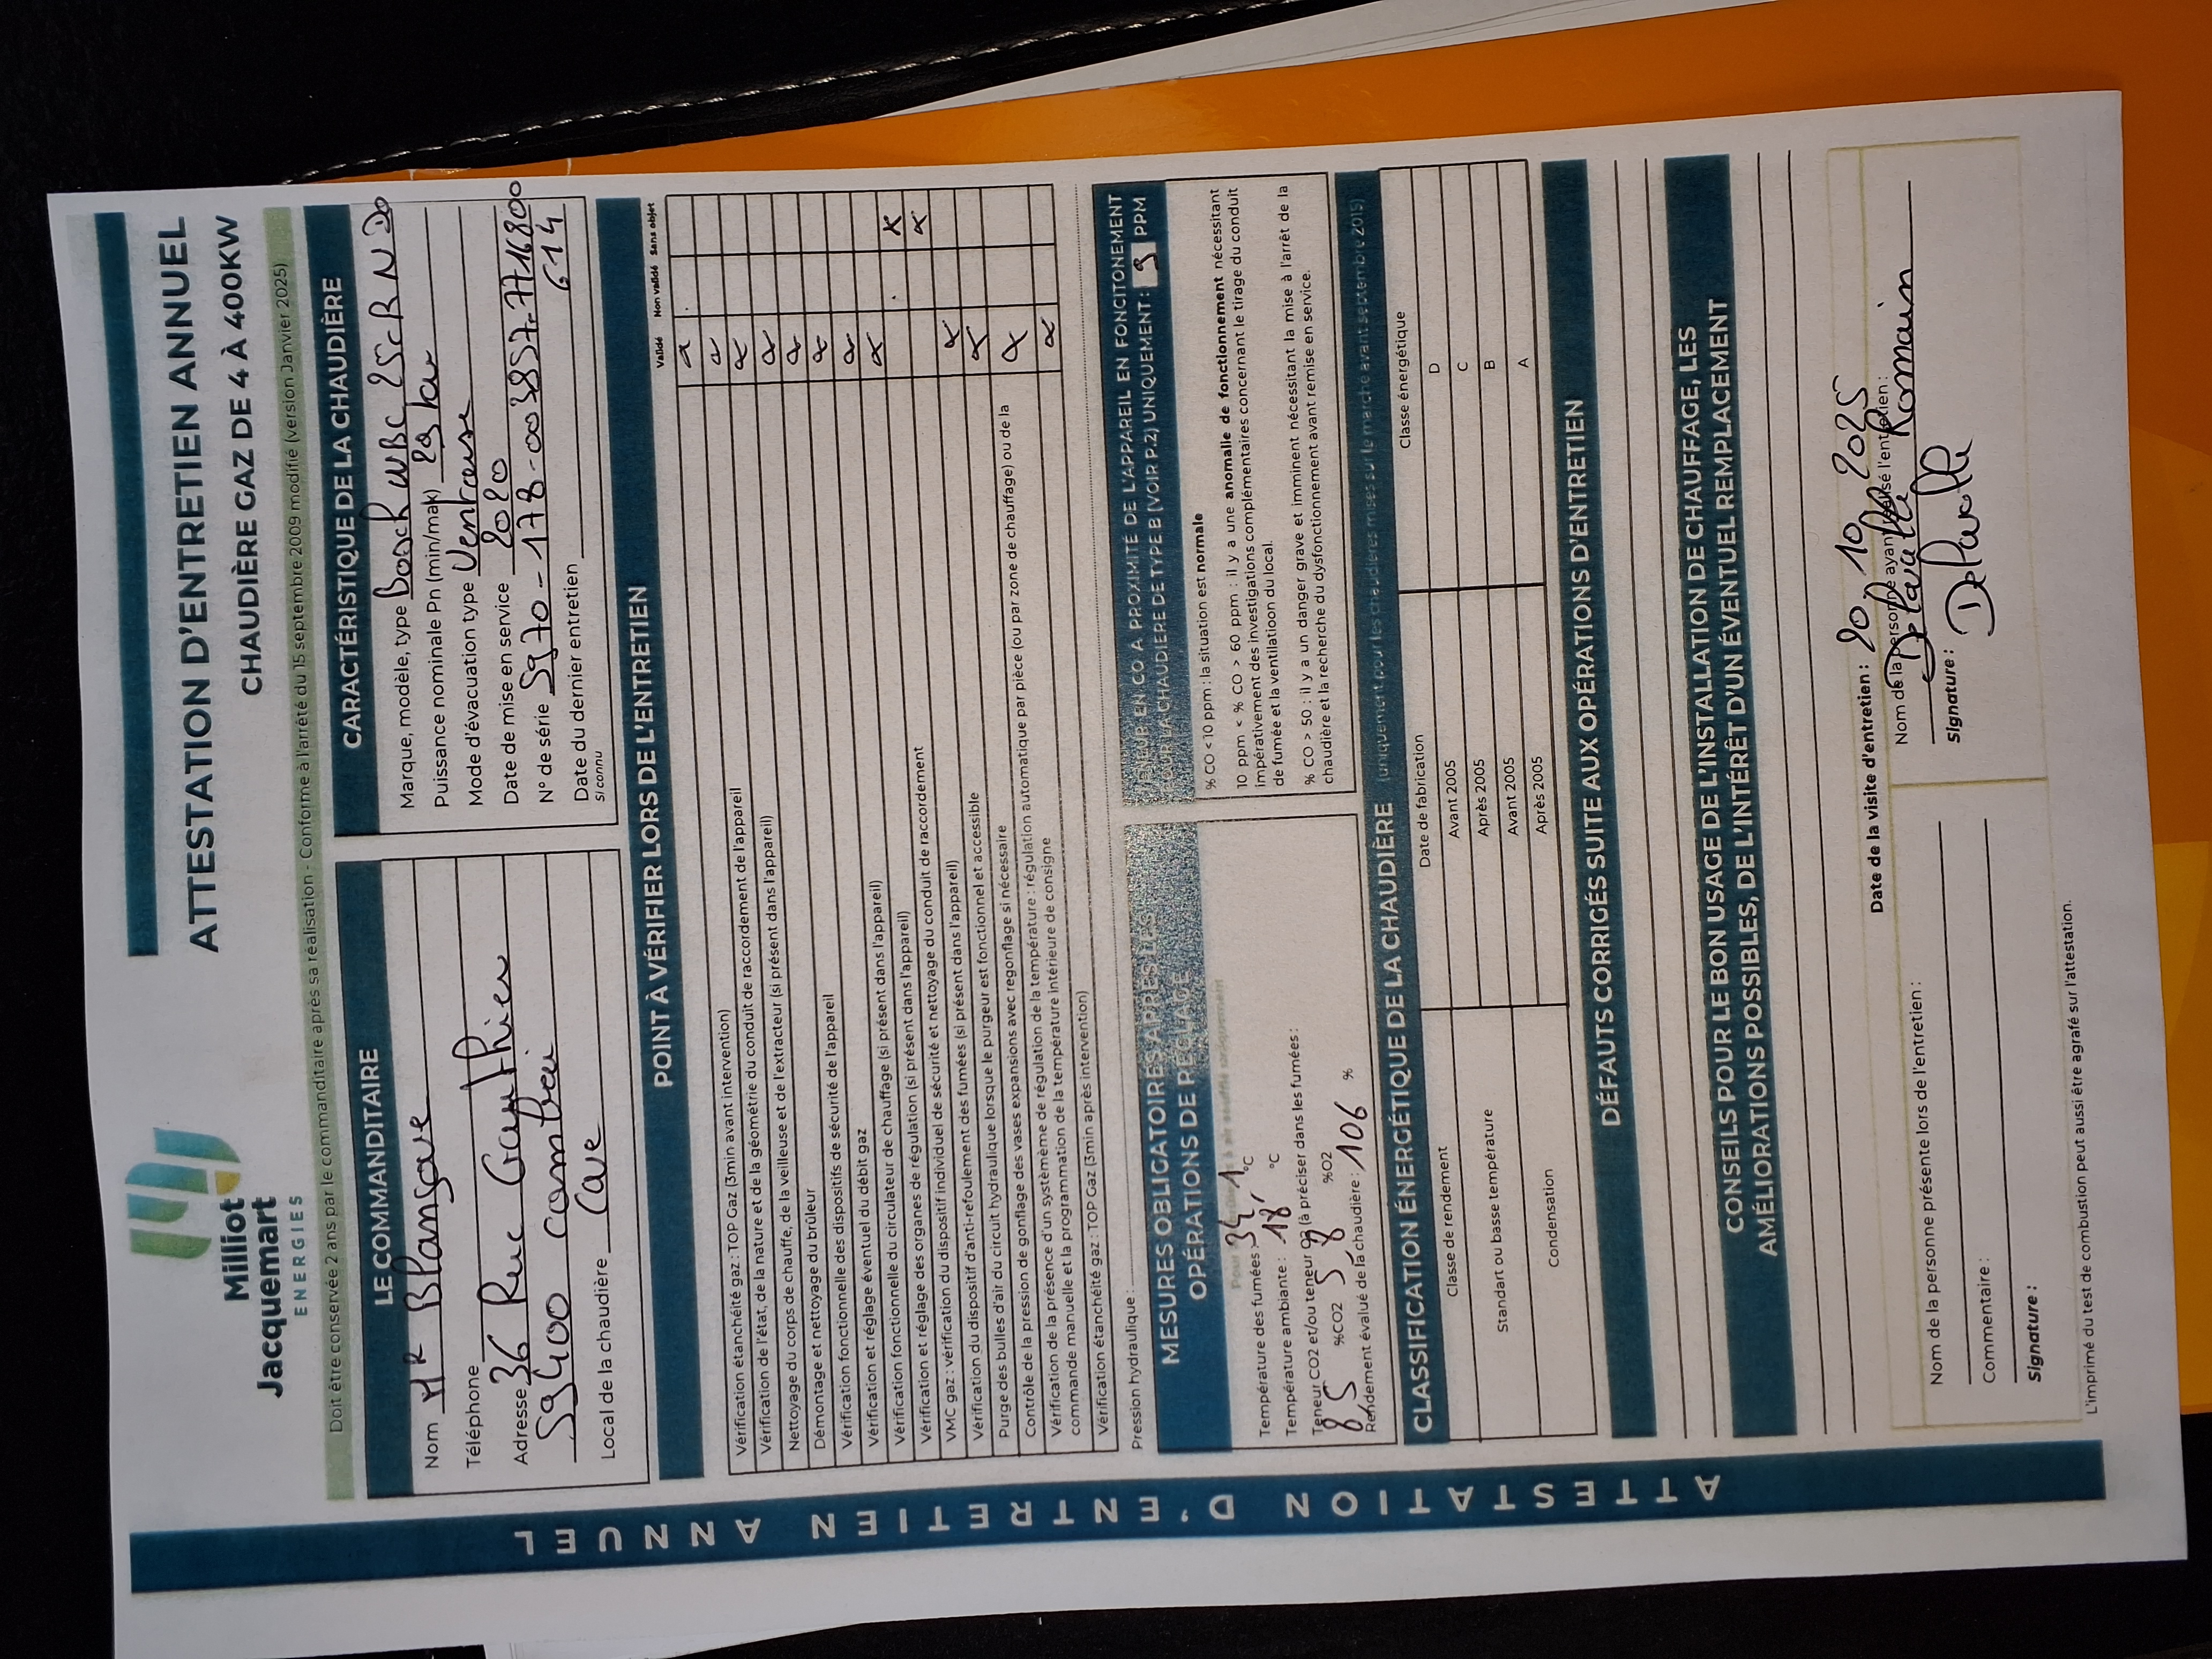 Milliot
Jacquemart
ENERGIES
ATTESTATION D'ENTRETIEN ANNUEL
CHAUDIÈRE GAZ DE 4 À 400KW
Doit être conservée 2 ans par le commanditaire après sa réalisation - Conforme à l'arrêté du 15 septembre 2009 modifié (version Janvier 2025)
LE COMMANDITAIRE
Nom MR Blangave
Téléphone
Adresse 36 Rue Gauthier
59400 Cambrai
Local de la chaudière Cave
CARACTÉRISTIQUE DE LA CHAUDIÈRE
Marque, modèle, type Bosch WBC 25cR N D
Puissance nominale Pn (min/mak) 29 kw
Mode d'évacuation type Ventouse
Date de mise en service 2020
N° de série 5970-178-003857-7716800
614
Date du dernier entretien
si connu
POINT À VÉRIFIER LORS DE L'ENTRETIEN
Validé Non validé Sans objet
Vérification étanchéité gaz : TOP Gaz (3min avant intervention)
Vérification de l'état, de la nature et de la géométrie du conduit de raccordement de l'appareil
Nettoyage du corps de chauffe, de la veilleuse et de l'extracteur (si présent dans l'appareil)
Démontage et nettoyage du brûleur
Vérification fonctionnelle des dispositifs de sécurité de l'appareil
Vérification et réglage éventuel du débit gaz
Vérification fonctionnelle du circulateur de chauffage (si présent dans l'appareil)
Vérification et réglage des organes de régulation (si présent dans l'appareil)
VMC gaz : vérification du dispositif individuel de sécurité et nettoyage du conduit de raccordement
Vérification du dispositif d'anti-refoulement des fumées (si présent dans l'appareil)
Purge des bulles d'air du circuit hydraulique lorsque le purgeur est fonctionnel et accessible
Contrôle de la pression de gonflage des vases expansions avec regonflage si nécessaire
Vérification de la présence d'un systèmème de régulation de la température : régulation automatique par pièce (ou par zone de chauffage) ou de la
commande manuelle et la programmation de la température intérieure de consigne
Vérification étanchéité gaz : TOP Gaz (3min après intervention)
Pression hydraulique :
MESURES OBLIGATOIRES APRES LES
OPÉRATIONS DE RÉGLAGE
Température des fumées : 34,1 °C
Température ambiante : 18, °C
Teneur CO2 et/ou teneur O2 (à préciser dans les fumées :
8,5 %CO2 5,8 %O2
Rendement évalué de la chaudière : 106 %
TENEUR EN CO A PROXIMITÉ DE L'APPAREIL EN FONCITONEMENT
POUR LA CHAUDIERE DE TYPE B (VOIR P.2) UNIQUEMENT : 3 PPM
% CO < 10 ppm : la situation est normale
10 ppm < % CO > 60 ppm : il y a une anomalie de fonctionnement nécessitant
impérativement des investigations complémentaires concernant le tirage du conduit
de fumée et la ventilatioon du local.
% CO > 50 : il y a un danger grave et imminent nécessitant la mise à l'arrêt de la
chaudière et la recherche du dysfonctionnement avant remise en service.
CLASSIFICATION ÉNERGÉTIQUE DE LA CHAUDIÈRE (uniquement pour les chaudières mises sur le marche avant septembre 2015)
Classe de rendement Date de fabrication Classe énergétique
Standart ou basse température Avant 2005 D
Après 2005 C
Condensation Avant 2005 B
Après 2005 A
DÉFAUTS CORRIGÉS SUITE AUX OPÉRATIONS D'ENTRETIEN
CONSEILS POUR LE BON USAGE DE L'INSTALLATION DE CHAUFFAGE, LES
AMÉLIORATIONS POSSIBLES, DE L'INTÉRÊT D'UN ÉVENTUEL REMPLACEMENT
Date de la visite d'entretien : 20 10 2025
Nom de la personne présente lors de l'entretien :
Commentaire :
Signature :
Nom de la personne ayant réalisé l'entretien :
Romain
Signature :
L'imprimé du test de combustion peut aussi être agrafé sur l'attestation.
ATTESTATION D'ENTRETIEN ANNUEL